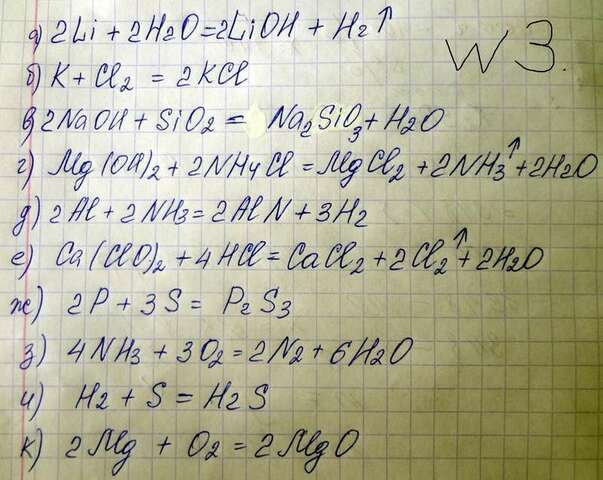 а) 2Li + 2H2O = 2LiOH + H2↑
W3.
б) K + Cl2 = 2KCl
в) 2NaOH + SiO2 = Na2SiO3 + H2O
г) Mg(OH)2 + 2NH4Cl = MgCl2 + 2NH3↑ + 2H2O
д) 2Al + 2NH3 = 2AlN + 3H2
е) Ca(ClO)2 + 4HCl = CaCl2 + 2Cl2↑ + 2H2O
ж) 2P + 3S = P2S3
з) 4NH3 + 3O2 = 2N2 + 6H2O
и) H2 + S = H2S
к) 2Mg + O2 = 2MgO